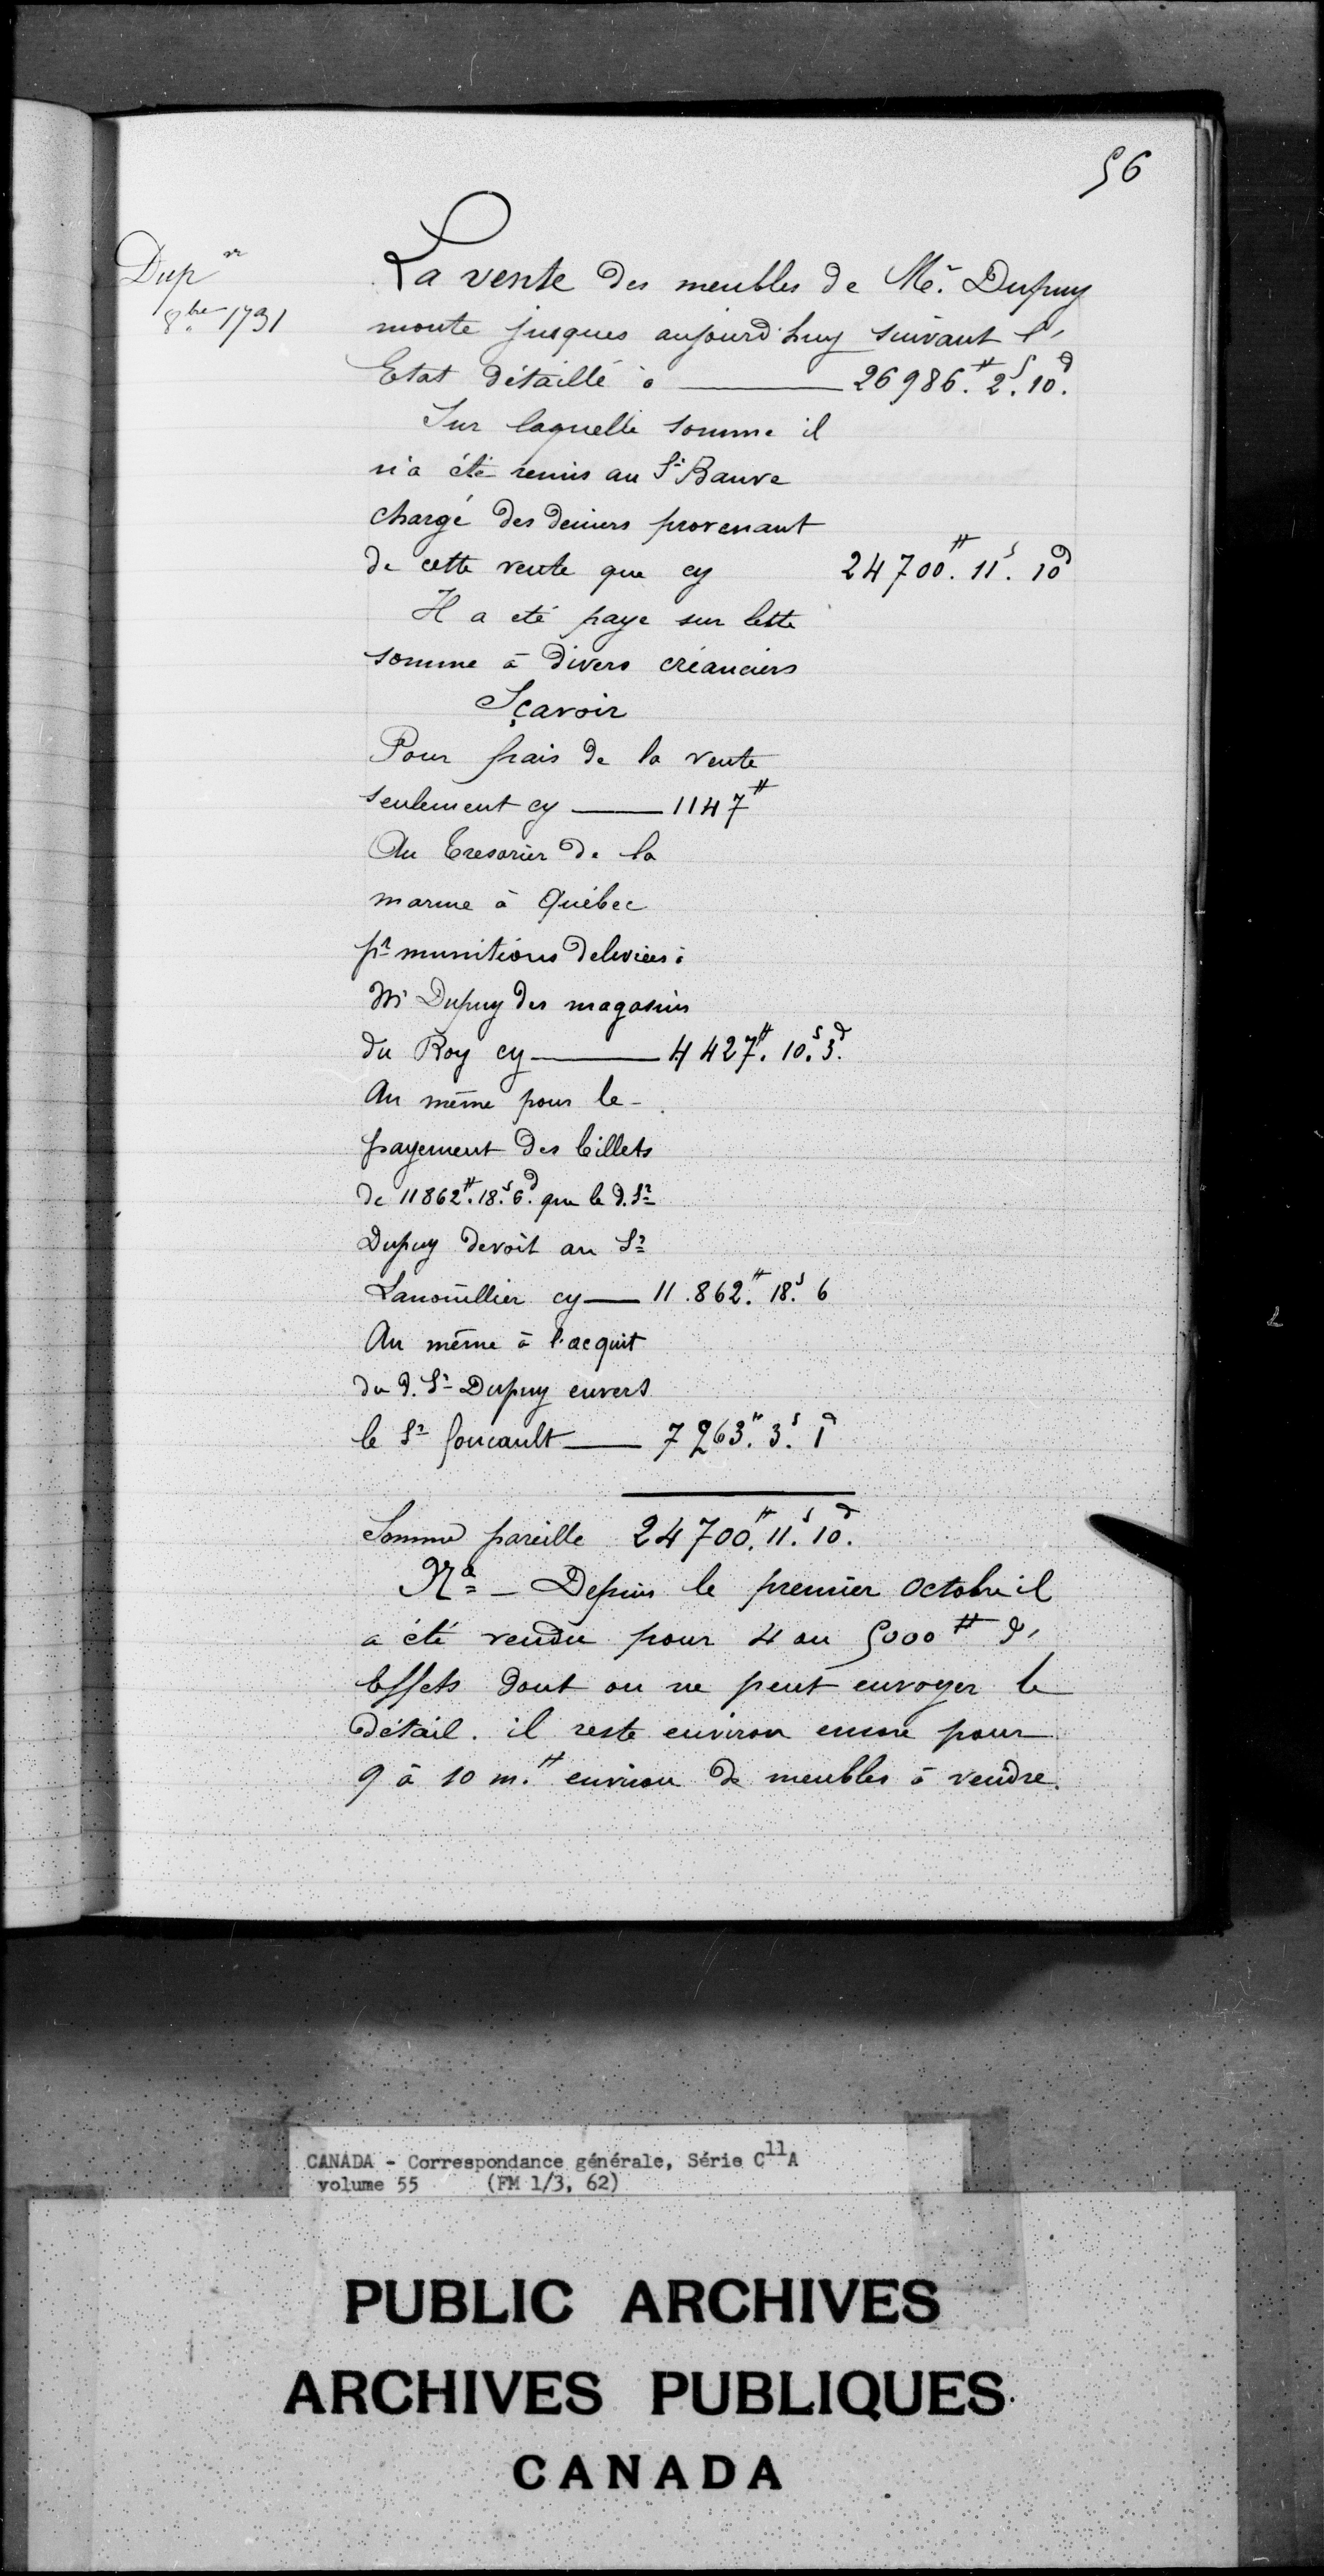 56
Dup^n
8.^bre 1731
La vente des meubles de M.^r Dupuy
monte jusques aujourd'huy suivant l'
Etat détaillé à ——— 26986.^# 2.^s 10.^d
Sur laquelle somme il
n'a été remis au S.^r Bauve
chargé des deniers provenant
de cette vente que cy 24700.^# 11.^s 10^d
Il a eté paye sur cette
somme à divers créanciers
Sçavoir
Pour frais de la vente
seulement cy ——— 1147^#
Au Tresorier de la
marine à Québec
p^r munitions delivrées à
M^r Dupuy des magasins
du Roy cy ——— 4427^#. 10.^s 3.^d
Au même pour le
payement des billets
de 11862^#. 18.^s 6.^d que le d. S^r
Dupuy devoit au S^r
Lanoüillier cy — 11.862.^# 18.^s 6
Au même à l'acquit
du d. S^r Dupuy envers
le S^r foucault — 7263.^# 3.^s 1^d
Somme pareille 24700.^# 11.^s 10.^d
N^a — Depuis le premier Octobre il
a été vendu pour 4 ou 5000^# d'
Effets dont on ne peut envoyer le
détail. il reste environ encore pour
9 à 10 m.^# environ de meubles à vendre.
CANADA - Correspondance générale, Série C^11A
volume 55 (FM 1/3, 62)
PUBLIC ARCHIVES
ARCHIVES PUBLIQUES
CANADA